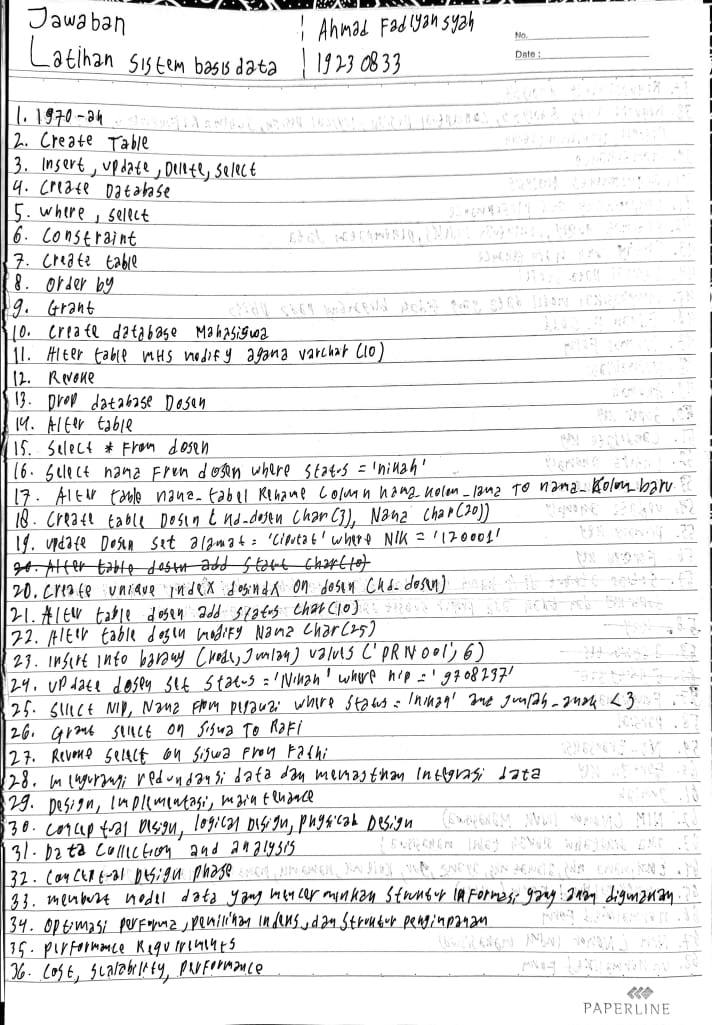 Jawaban
Latihan Sistem basis data
Ahmad Fadlyansyah
19230833
No.
Date :
1. 1970-an
2. Create Table
3. Insert, update, Delete, select
4. Create Database
5. where, select
6. Constraint
7. Create table
8. order by
9. Grant
10. Create database Mahasiswa
11. Alter table mhs modify agama varchar (10)
12. Revoke
13. Drop database Dosen
14. Alter table
15. Select * From dosen
16. Select nama From dosen where status = 'nikah'
17. Alter table nama_tabel Rename Column nama_kolom_lama To nama_kolom_baru
18. Create table Dosen ( kd_dosen Char(3), Nama char(20))
19. update Dosen set alamat = 'Ciputat' where NIK = '120001'
20. Alter table dosen add status char(10)
20. Create unique index dosindx on dosen (kd_dosen)
21. Alter table dosen add status char(10)
22. Alter table dosen modify Nama Char(25)
23. insert into barang (kode, Jumlah) values ('PRN001', 6)
24. update dosen set status = 'Nikah' where nip = '9708237'
25. select NIP, Nama From pegawai where status = 'nikah' and Jumlah_anak < 3
26. Grant select on Siswa To Rafi
27. Revoke select on siswa From Fathi
28. mengurangi redundansi data dan memastikan Integrasi data
29. Design, Implementasi, maintenance
30. conceptual Design, logical Design, physical Design
31. Data Collection and analysis
32. Conceptual Design phase
33. membuat model data yang mencerminkan struktur informasi yang akan digunakan
34. optimasi performa, pemilihan indeks, dan struktur penyimpanan
35. performance Requirements
36. Cost, scalability, performance
PAPERLINE